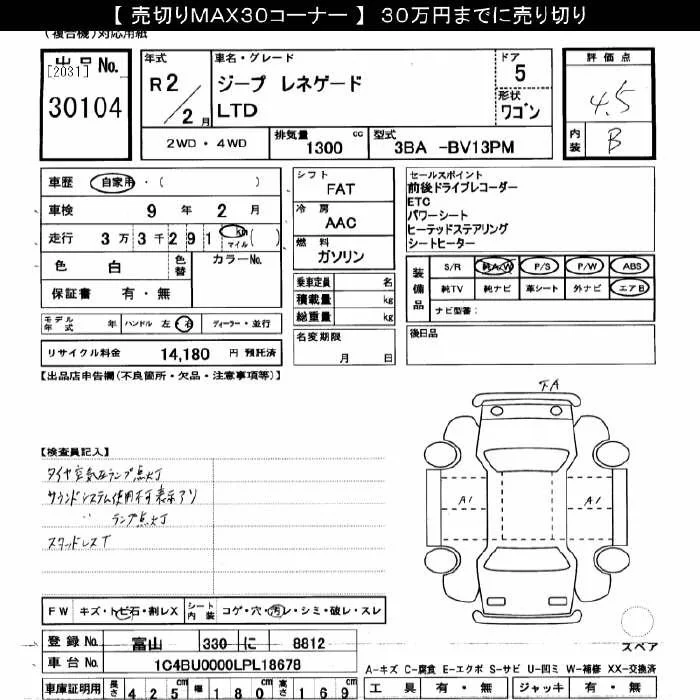 【 売切りMAX30コーナー 】 30万円までに売り切り
(複合機)対応用紙
出品 No.
[2031]
30104
年式
R2/2月
車名・グレード
ジープ レネゲード
LTD
ドア
5
形状
ワゴン
評価点
4.5
内装
B
2WD・4WD
排気量
1300 cc
型式
3BA -BV13PM
車歴 自家用・( )
車検 9年 2月
走行 3万3千291 km マイル ( )
色 白 色替 カラーNo.
保証書 有・無
シフト
FAT
冷房
AAC
燃料
ガソリン
乗車定員 名
積載量 kg
総重量 kg
セールスポイント
前後ドライブレコーダー
ETC
パワーシート
ヒーテッドステアリング
シートヒーター
装備品
S/R 純A/W P/S P/W ABS
純TV 純ナビ 革シート 外ナビ エアB
ナビ型番:
モデル年式 年 ハンドル 左・右 ディーラー・並行
名変期限
月 日
後日品
リサイクル料金 14,180 円 預託済
【出品店申告欄(不良箇所・欠品・注意事項等)】
【検査員記入】
タイヤ空気圧ランプ点灯
サウンドシステム使用不可表示アリ
〃 ランプ点灯
スタッドレスT
下A
A1
A1
FW キズ・トビ石・割レX シート内装 コゲ・穴・汚レ・シミ・破レ・スレ
スペア
登録No. 富山 330 に 8812
車台No. 1C4BU0000LPL18678
A-キズ C-腐食 E-エクボ S-サビ U-凹ミ W-補修 XX-交換済
車庫証明用 長さ 425cm 幅 180cm 高さ 169cm
工具 有・無 ジャッキ 有・無